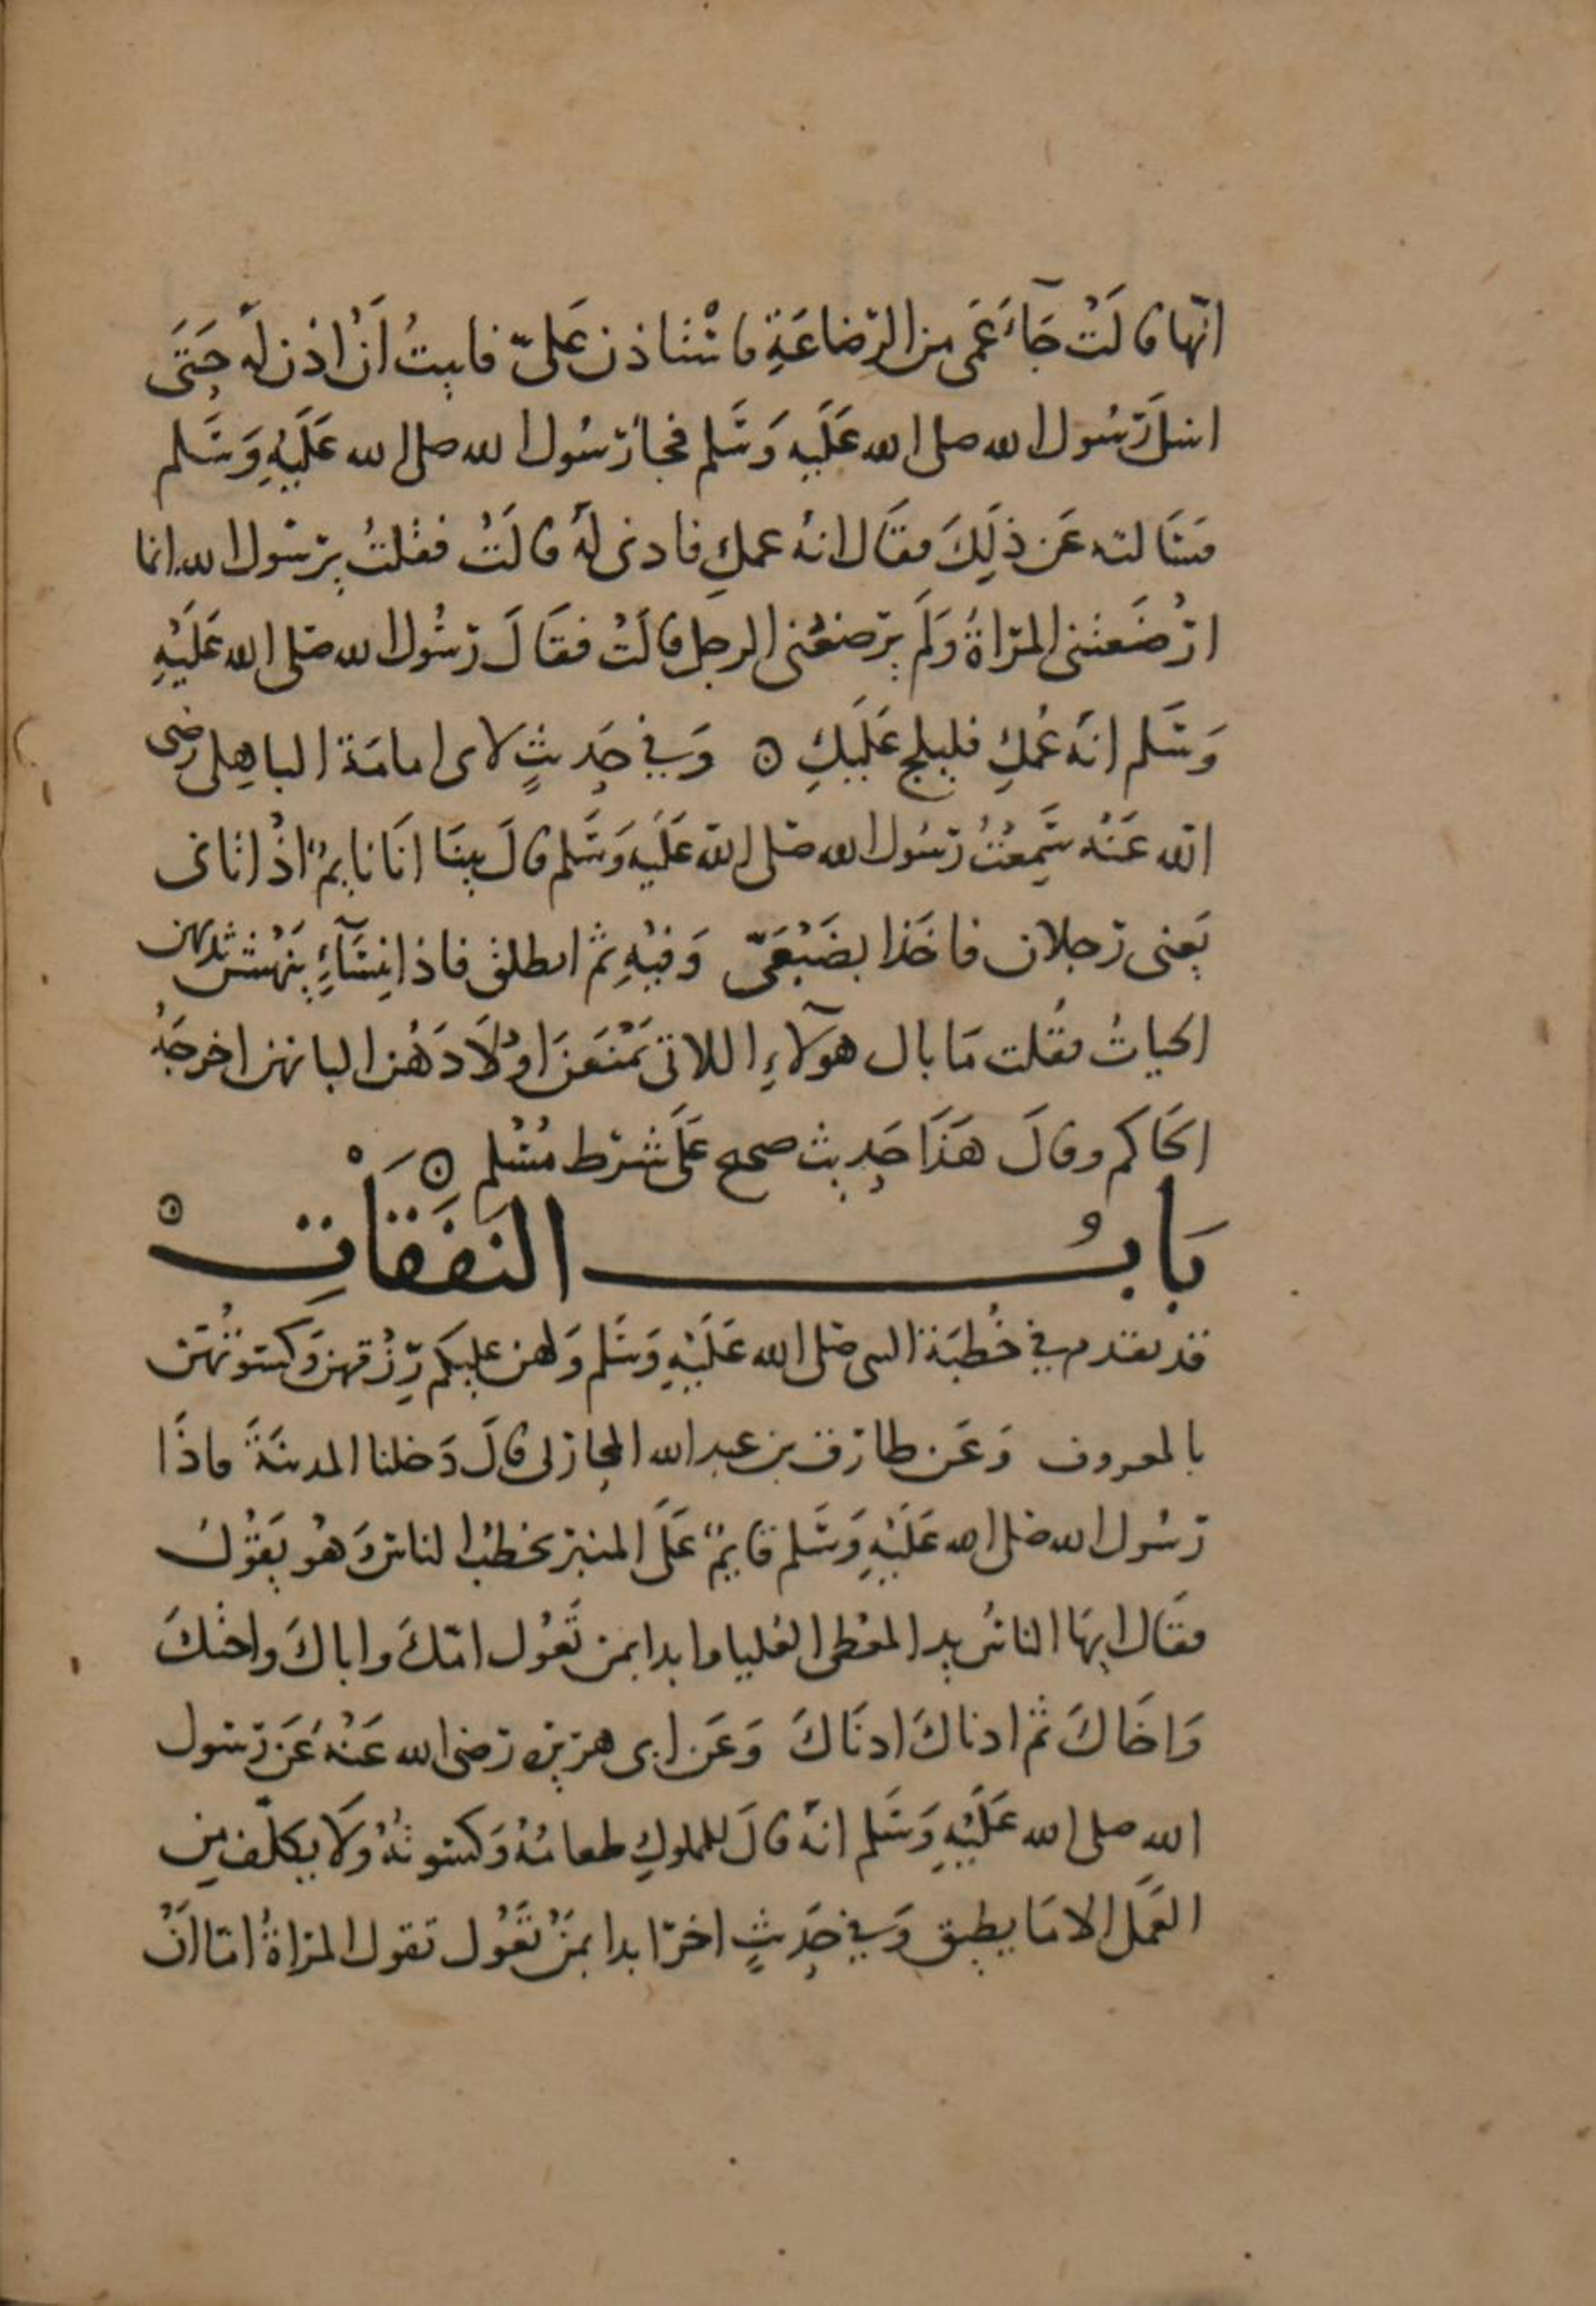 انّها قالَتْ جَآءَ عَمى من الرّضاعَةِ فاسْتاذن عَلىّ فابيتُ اَنْ اذن لَهُ حَتَى
اسلَ رَسُول الله صلى الله عَلَيه وَسَلم فجاء رَسُول الله صلى الله عَلَيْهِ وَسَلم
فسَالته عَن ذلِكَ فقال انهُ عمكِ فاذنى لَهُ قالَتْ فقلتُ يرسول الله انما
ارْضَعتنى المرْاةُ وَلَم يرضعْنى الرجل قالَتْ فقالَ رَسُول الله صَلى الله عَلَيْهِ
وَسَلم انه عُمكِ فليلج عَلَيكِ ۞ وَفي حَديثٍ لابى امامَة الباهِلى رضى
الله عَنْه سَمِعْتُ رَسُول الله صَلى الله عَلَيه وَسَلم قالَ بينَا انَا نايمٌ اذْ اتانى
يَعنى رجلان فاخَذا بضَبْعَىّ وَفيْهِ ثم انطلق فاذا نِسَآءٍ يَنْهشْ ثديهن
الحياتُ فقلت مَا بال هؤلآءِ اللاتى يَمْنَعنَ اوْلَادَهُن البانهن اخرجَهُ
الحَاكم وقالَ هَذَا حَديث صحيح عَلَى شرط مُسْلم ۞
بَابُ النَفَقَاتِ ۞
قد تقدم في خُطبَة النبى صَلى الله عَلَيْهِ وَسَلم وَلهن عليكم رِزْقهن وَكسوتُهَن
بالمعروف وَعَن طارق بن عبد الله المحاربى قالَ دَخلنا المدينَةَ فاذَا
رَسُول الله صَلى الله عَلَيْهِ وَسَلم قايمٌ عَلَى المنبر يخطبُ الناس وَهُو يَقوْلُ
فقال ايهَا الناسُ يد المعْطى العُليا وابدا بمن تَعُول امّكَ واباكَ واختكَ
وَاخَاكَ ثم ادناكَ ادنَاكَ وَعَن ابى هريره رَضى الله عَنْهُ عَن رَسول
الله صلى الله عَلَيْهِ وَسَلم انهُ قالَ للمملوكِ طعامُهُ وَكسْوتُهُ وَلَا يكلّف من
العَمَل الا مَا يطيق وَفي حَديثٍ اخر ابدا بمَنْ تَعُول تقول المراةُ امّا اَنْ